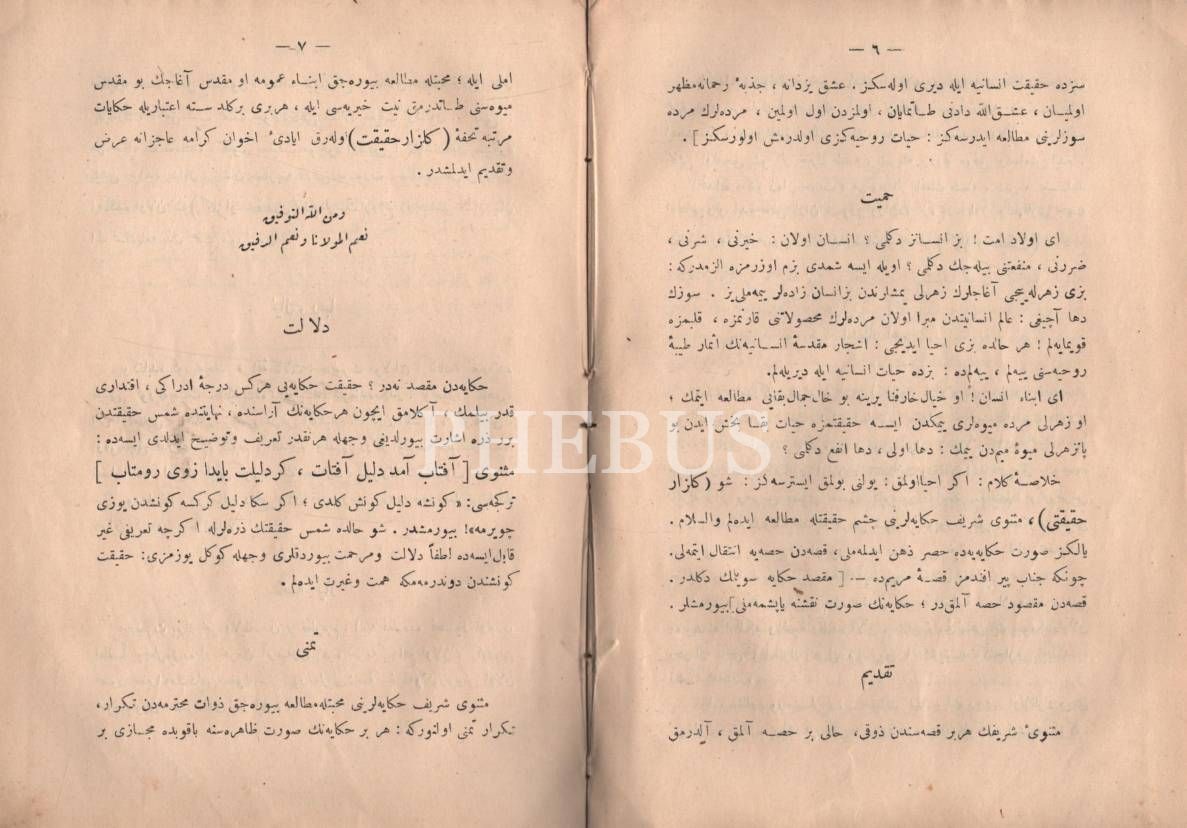 — ٦ —
سزده حقیقت انسانیه ایله دیری اوله‌سکز . عشق یزدانه ، جذبهٔ رحمانه مظهر
اولمیـان ، عشـق‌الله دادنی طـاتمایان ، اولمزدن اول اولمین ، مرده‌لرك مرده
سوزلرینی مطالعه ایدرسه‌کز : حیات روحیه‌کزی اولدرمش اولورسکز ] .
حمیت
ای اولاد امت ! بز انسـانز دکلمی ؟ انسـان اولان : خیرنی ، شرنی ،
ضررنی ، منفعتنی بیله‌جك دکلمی ؟ اویله ایسه شمدی بزم اوزرمزه الزمدرکه :
بزی زهرله‌ییجی آغاجلرك زهرلی یمشلرندن بز انسان زاده‌لر ییمه‌ملی‌یز . سوزك
دها آچیغی : عالم انسانیتدن مبرا اولان مرده‌لرك محصولاتنی قارنمزه ، قلبمزه
قویمایه‌لم ! هر حالده بزی احیا ایدیجی : اشجار مقدسهٔ انسـانیه‌نك اثمار طیبهٔ
روحیه‌سنی ییه‌لم ، ییه‌لم‌ده : بزده حیات انسانیه ایله دیریله‌لم.
ای ابناء انسان ! او خیال خارفنا یرینه بو خال جمال بقایی مطالعه ایتمك ؛
او زهرلی مرده میوه‌لری ییمکدن ایسه حقیقتمزه حیات بقـا بخش ایدن بو
پانزهرلی میوهٔ میم‌دن یمك : دها اولی ، دها انفع دکلمی ؟
خلاصهٔ کلام : اکر احیا اولمق : یولنی بولمق ایسترسه‌کز : شو (کلزار
حقیقتی) ، مثنوی شریف حکایه‌لرینی چشم حقیقتله مطالعه ایده‌لم والسلام .
یالکز صورت حکایه‌یه‌ده حصر ذهن ایدلمه‌ملی، قصه‌دن حصه‌یه انتقال ایتمه‌لی.
چونکه جناب پیر افندمز قصـهٔ مریم‌ده —٠ [ مقصد حکایه سویلمك دکلدر .
قصه‌دن مقصود حصه آلمق‌در ؛ حکایه‌نك صورت نقشنه یاپیشمه‌ملی ] بیورمشلر .
تقدیم
مثنویٔ شریفك هر بر قصه‌سندن ذوقی، حالی بر حصـه آلمق ، آلدرمق
— ٧ —
املی ایله ؛ محبتله مطالعه بیوره‌جق ابنـاء عمومه او مقدس آغاجك بو مقدس
میوه‌سنی طـاتدرمق نیت خیریه‌سی ایله ، هربری برکلدسته اعتباریله حکایات
مرتبه تحفهٔ (کلزار حقیقت) اوله‌رق ایادیٔ اخوان کرامه عاجزانه عرض
وتقدیم ایدلمشدر .
ومن الله التوفیق
نعم المولانا ونعم الرفیق
دلالت
حکایه‌دن مقصد نه‌در ؟ حقیقت حکایه‌یی هرکس درجهٔ ادراکی ، اقتداری
قدر بیلمك ، آکلامق ایچون هر حکایه‌نك آراسنده ، نهایتنده شمس حقیقتدن
برر ذره اشارت بیورلدیغی وجهله هر نقدر تعریف وتوضیح ایدلدی ایسه‌ده :
مثنوی [ آفتاب آمد دلیل آفتاب ، کر دلیلت باید از وی رومتاب ]
ترجمه‌سی: «کونشه دلیل کونش کلدی ؛ اکر سکا دلیل کرکسه کونشدن یوزی
چویرمه»! بیورمشدر . شو حالده شمس حقیقتك ذره‌لرله اکرچه تعریفی غیر
قابل ایسه‌ده لطفاً دلالت ومرحمت بیوردقلری وجهله کوکل یوزمزی : حقیقت
کونشندن دوندرمه‌مکه همت وغیرت ایده‌لم .
تمنی
مثنوی شریف حکایه‌لرینی محبتله مطالعه بیوره‌جق ذوات محترمه‌دن تکرار ،
تکرار تمنی اولنورکه : هر بر حکایه‌نك صورت ظاهره‌سنه باقوبده مجازی بر
PHEBUS